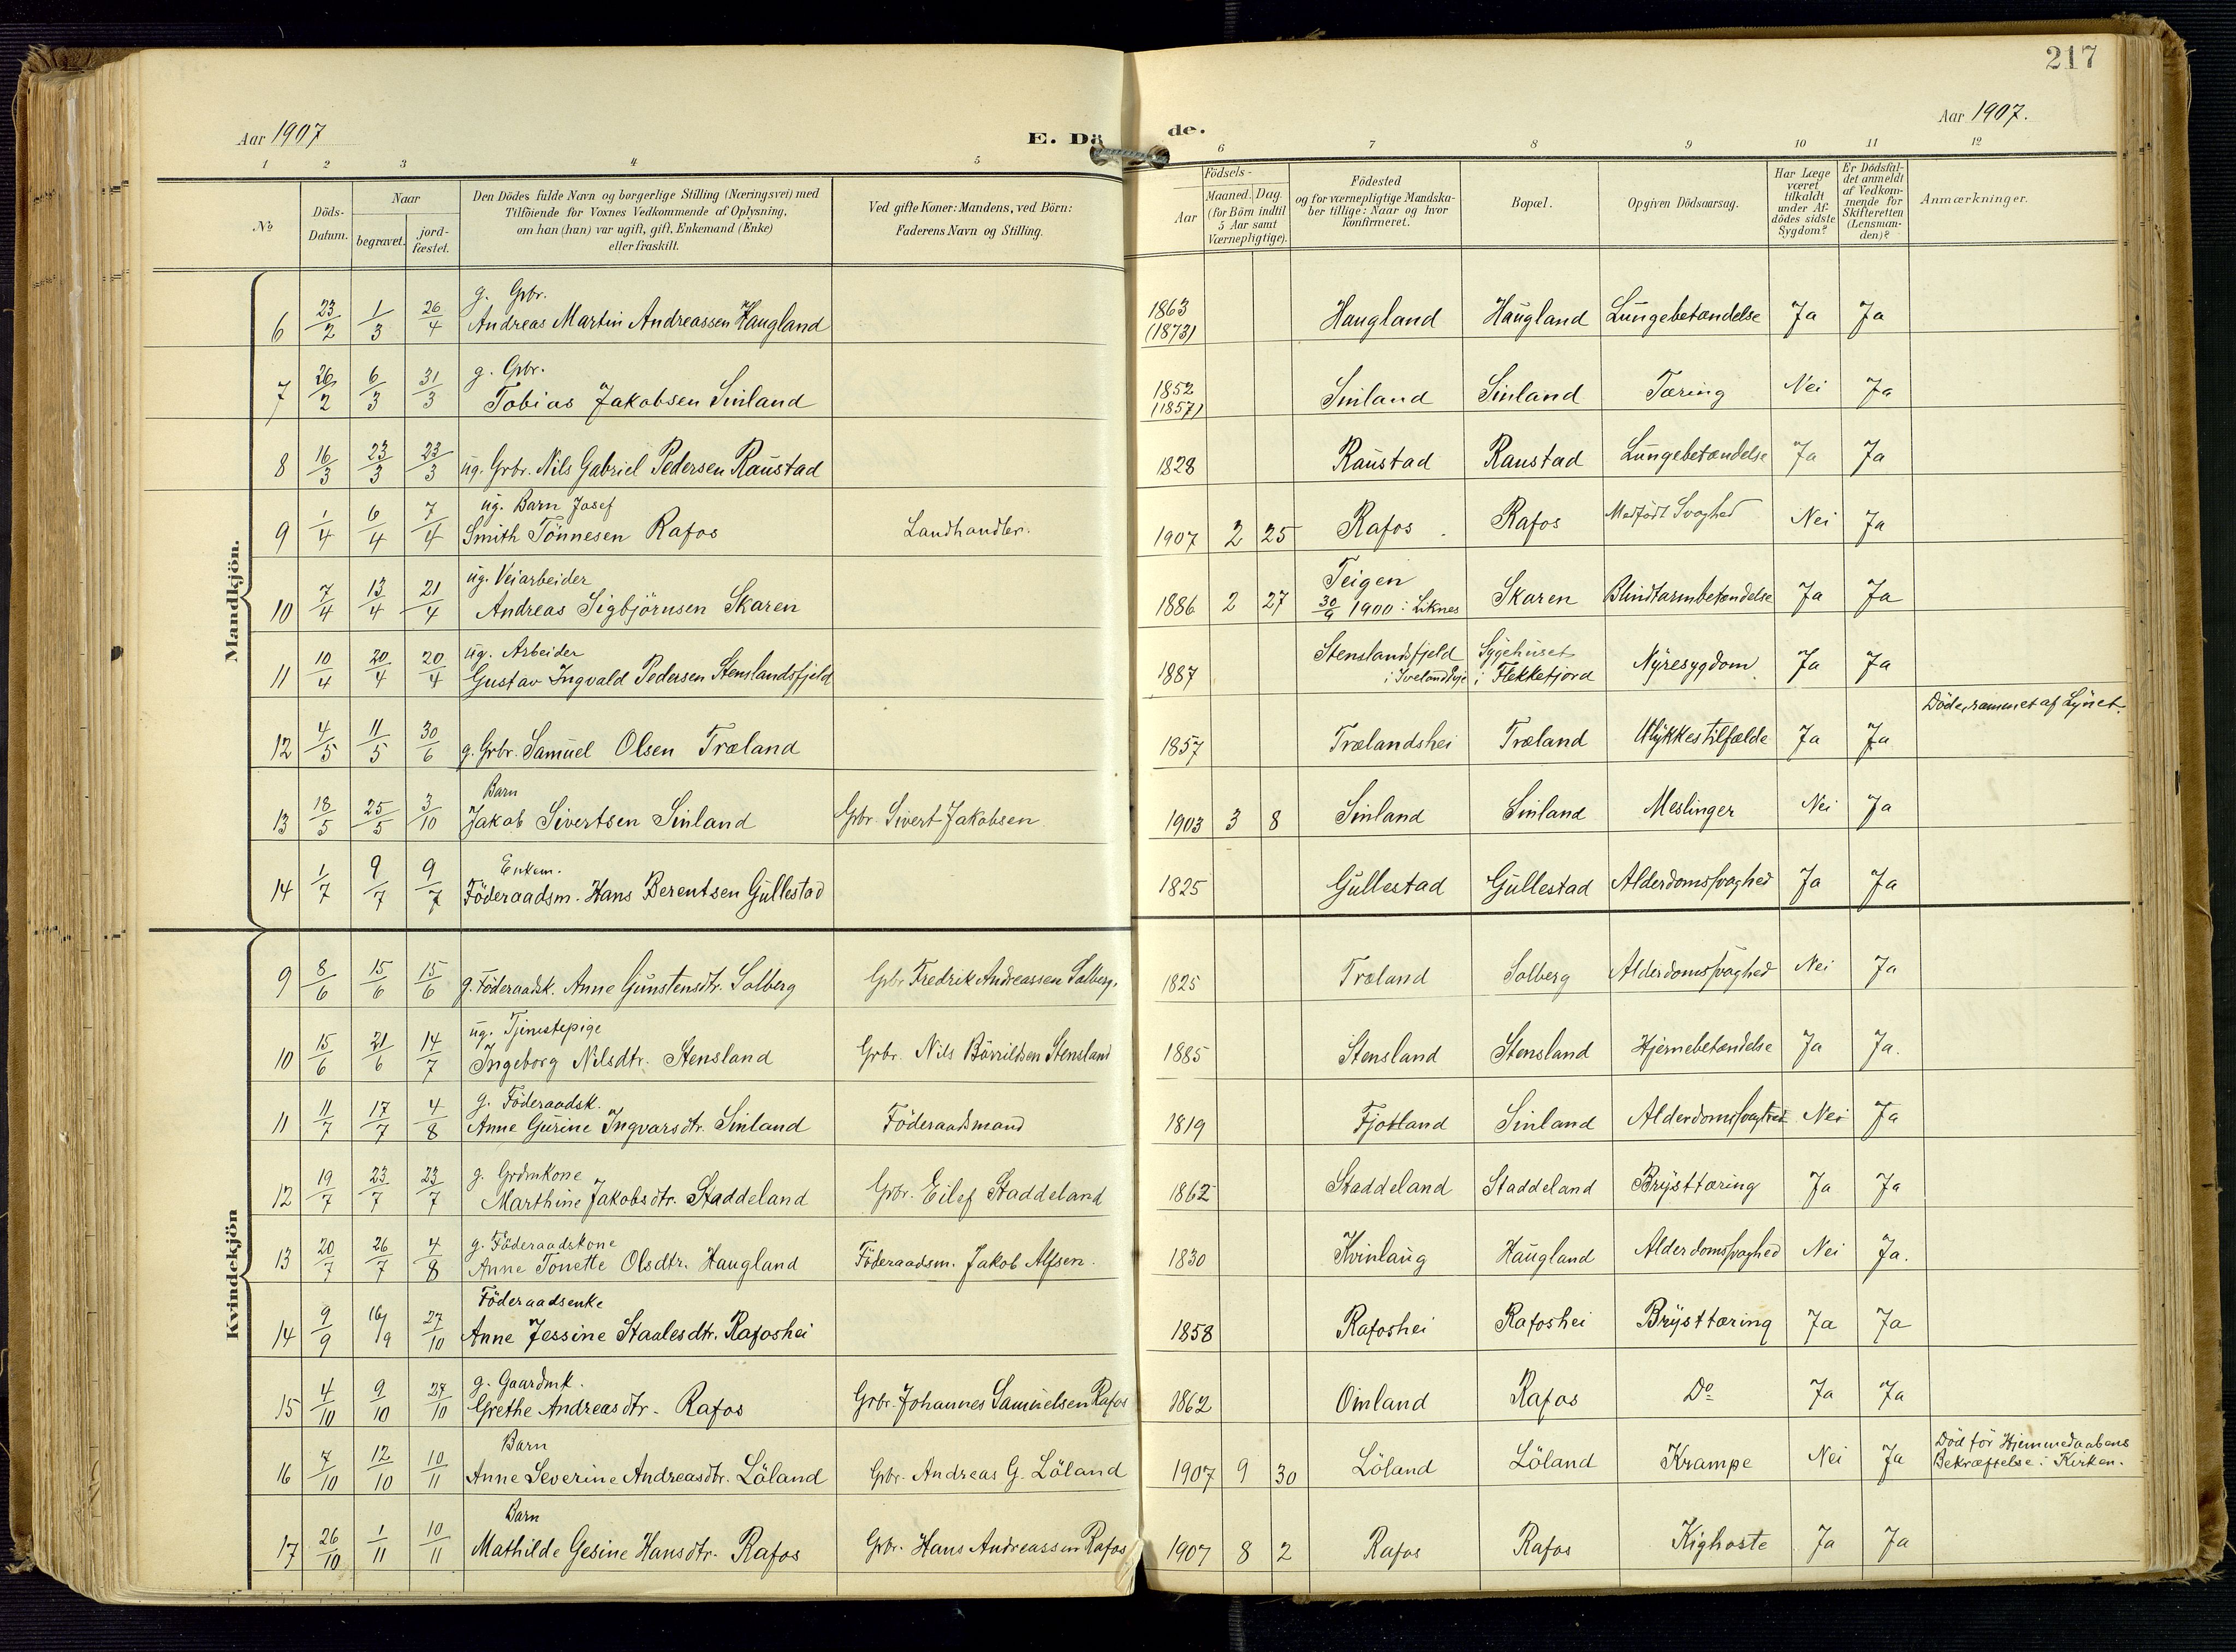 217
Aar 1907
E. Dö de.
Aar 1907.
1 2 3 4 5 6 7 8 9 10 11 12
No
Döds-Datum.
Naar
begravet.
jordfæstet.
Den Dödes fulde Navn og borgerlige Stilling (Næringsvei) med
Tilföiende for Voxnes Vedkommende af Oplysning,
om han (hun) var ugift, gift, Enkemand (Enke)
eller fraskilt.
Ved gifte Koner: Mandens, ved Börn:
Faderens Navn og Stilling.
Födsels-
Aar
Maaned. Dag.
(for Börn indtil
5 Aar samt
Værnepligtige).
Födested
og for værnepligtige Mandska-
ber tillige: Naar og hvor
konfirmeret.
Bopæl.
Opgiven Dödsaarsag.
Har Læge
været
tilkaldt
under Af-
dödes sidste
Sygdom?
Er Dödsfal-
det anmeldt
af Vedkom-
mende for
Skifteretten
(Lensman-
den)?
Anmærkninger.
Mandkjön.
g. Gbr.
6 23/2 1/3 26/4 Andreas Martin Andreassen Haugland 1863 (1873) Haugland Haugland Lungebetændelse Ja Ja
g. Gbr.
7 26/2 6/3 31/3 Tobias Jakobsen Sinland 1852 (1857) Sinland Sinland Tæring Nei Ja
8 16/3 23/3 23/3 ug. Grbr. Nils Gabriel Pedersen Raustad 1828 Raustad Raustad Lungebetændelse Ja Ja
ug. Barn Josef
9 1/4 6/4 7/4 Smith Tönnesen Rafos Landhandler. 1907 2 25 Rafos Rafos Medfödt Svaghed Nei Ja
ug. Veiarbeider Teigen
10 7/4 13/4 21/4 Andreas Sigbjörnsen Skaren 1886 2 27 30/9 1900 i Liknes Skaren Blindtarmbetændelse Ja Ja
ug. Arbeider Stenslandsfjeld Sygehuset
11 10/4 20/4 20/4 Gustav Ingvald Pedersen Stenslandsfjeld 1887 i Flekkefjord Nyresygdom Ja Ja
Döde, rammet af Lynet.
12 4/5 11/5 30/6 g. Grbr. Samuel Olsen Træland 1857 Trælandshei Træland Ulykkestilfælde Ja Ja
Barn
13 18/5 25/5 3/10 Jakob Sivertsen Sinland Gbr. Sivert Jakobsen 1903 3 8 Sinland Sinland Meslinger Nei Ja
Enkem.
14 1/7 9/7 9/7 Föderaadsm. Hans Berentsen Gullestad 1825 Gullestad Gullestad Alderdomssvaghed Ja Ja
Kvindekjön
9 8/6 15/6 15/6 g. Föderaadsk. Anne Gunstensdtr. Solberg Gbr. Fredrik Andreassen Solberg. 1825 Træland Solberg Alderdomssvaghed Nei Ja
ug. Tjenestepige
10 15/6 21/6 14/7 Ingeborg Nilsdtr. Stensland Grbr. Nils Börrildsen Stensland 1885 Stensland Stensland Hjernebetændelse Ja Ja.
g. Föderaadsk.
11 11/7 17/7 4/8 Anne Gurine Ingvarsdtr. Sinland Föderaadsmand 1819 Fjotland Sinland Alderdomssvaghed Nei Ja
g. Grdmkone
12 19/7 23/7 23/7 Marthine Jakobsdtr. Staddeland Grbr. Eilef Staddeland 1862 Staddeland Staddeland Brysttæring Ja Ja
g. Föderaadskone
13 20/7 26/7 4/8 Anne Tonette Olsdtr. Haugland Föderaadsm. Jakob Alfsen. 1830 Kvinlaug Haugland Alderdomssvaghed Nei Ja.
Föderaadsenke
14 9/9 16/9 27/10 Anne Jessine Staalesdtr. Rafoshei 1858 Rafoshei Rafoshei Brysttæring Ja Ja
g. Gaardmk.
15 4/10 9/10 27/10 Grethe Andreasdtr. Rafos Grbr. Johannes Samuelsen Rafos 1862 Omland Rafos Do Ja Ja
Barn Död för Hjemmedaabens
16 7/10 12/10 10/11 Anne Severine Andreasdtr. Löland Gbr. Andreas G. Löland 1907 9 30 Löland Löland Krampe Nei Ja Bekræftelse i Kirken.
Barn
17 26/10 1/11 10/11 Mathilde Gesine Hansdtr. Rafos Gbr. Hans Andreassen Rafos 1907 8 2 Rafos Rafos Kighoste Ja Ja